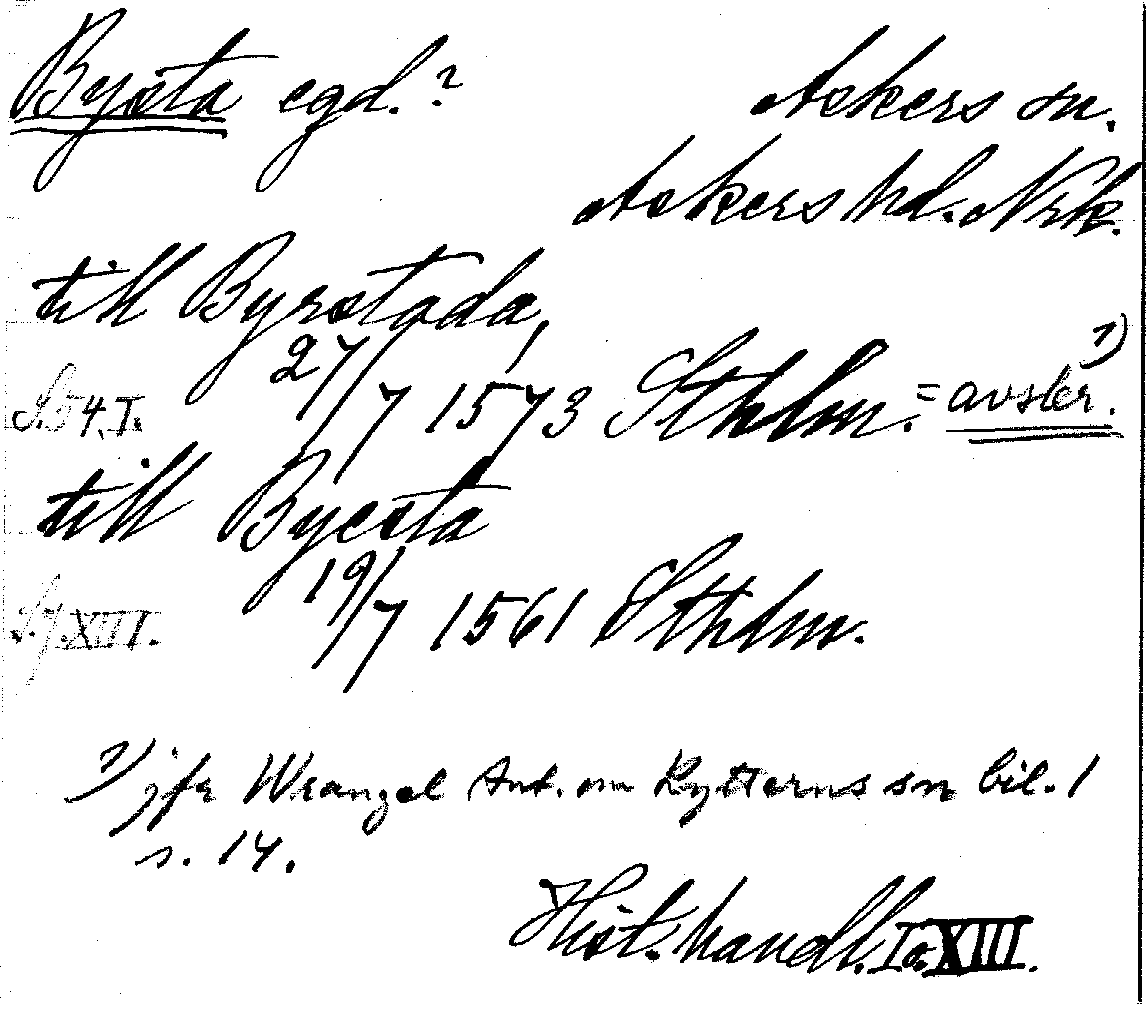 Bysta egd.?
Askers sn.
Askers hd. Nrk.
till Byrstada,
27/7 1573 Sthlm. = avskr. 1)
S. 54. I.
till Bycsta
19/7 1561 Sthlm.
S. 7. XIII.
1) jfr Wrangel Ant. om Rytterns sn bil. 1
s. 14.
Hist. handl. I o. XIII.